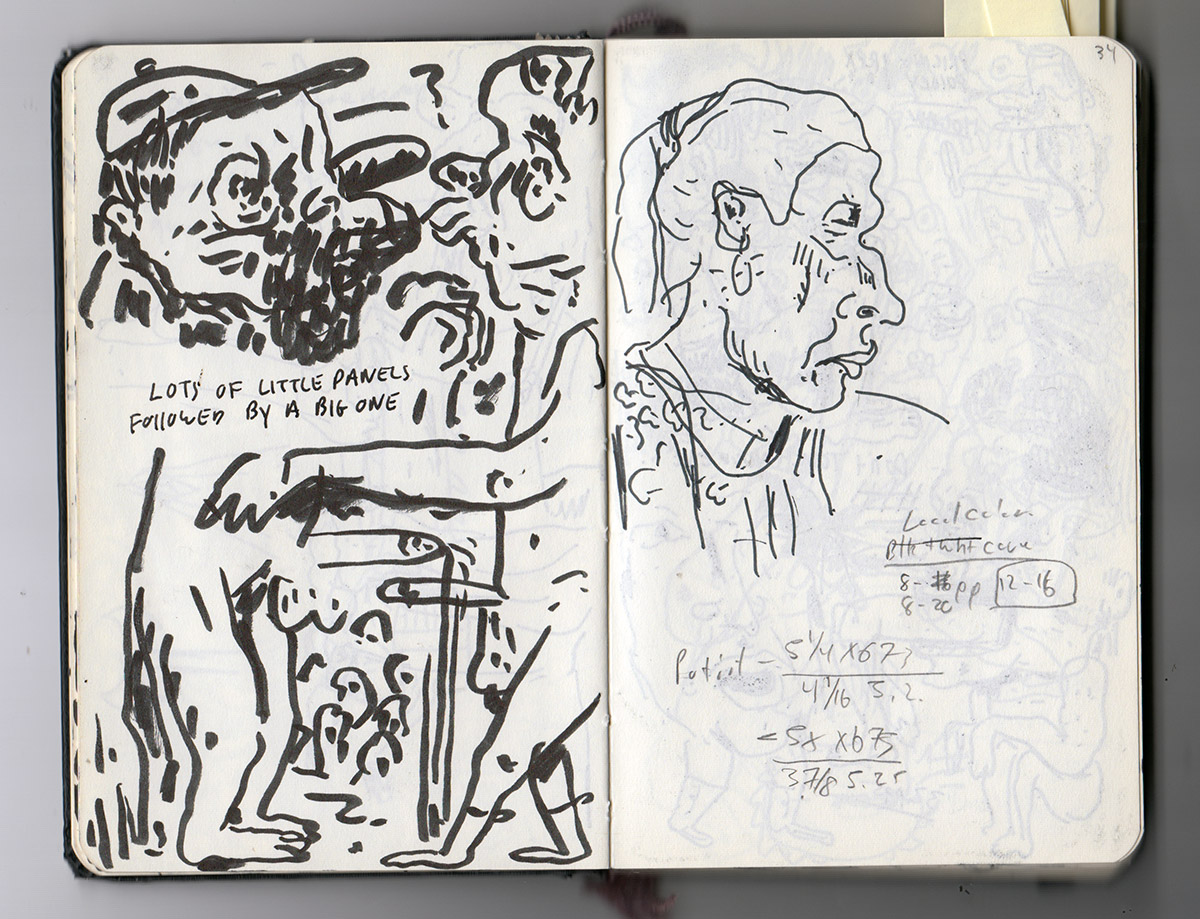 LOTS OF LITTLE PANELS
FOLLOWED BY A BIG ONE
34
Local color
8-
pp
12-16
8-20
5 1/4 X 673
4 1/16 5.2
X 675
3 7/8 5.25